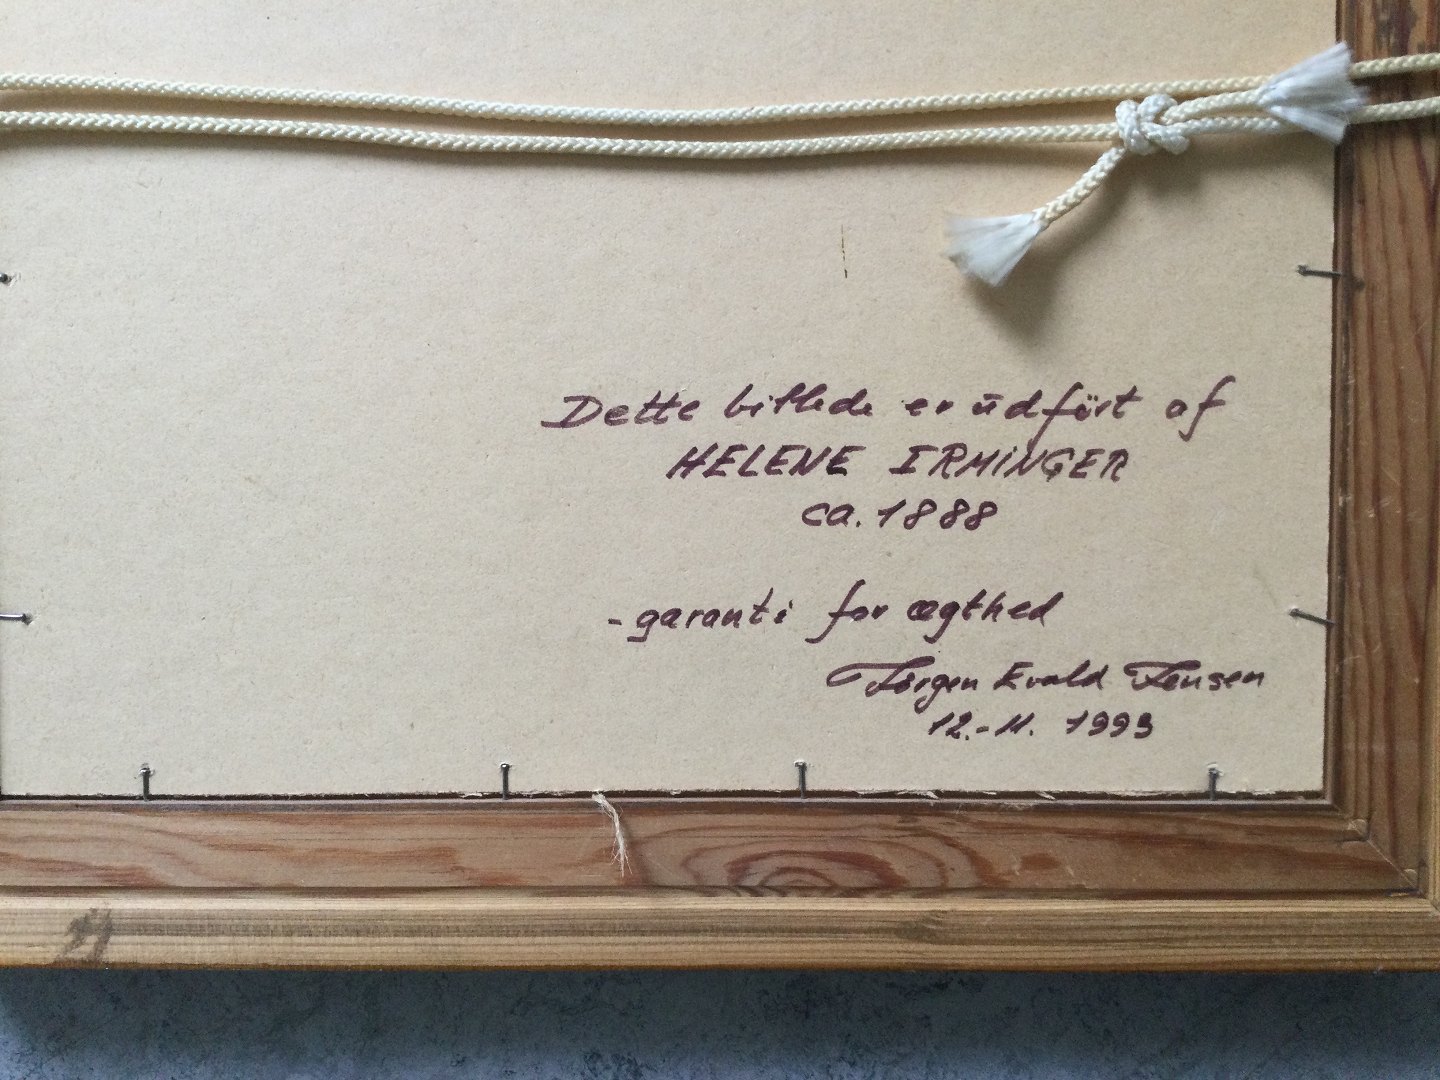 Dette billede er udfört af
HELENE IRMINGER
ca. 1888
- garanti for ægthed
Jørgen Evald Jensen
12.-11. 1993